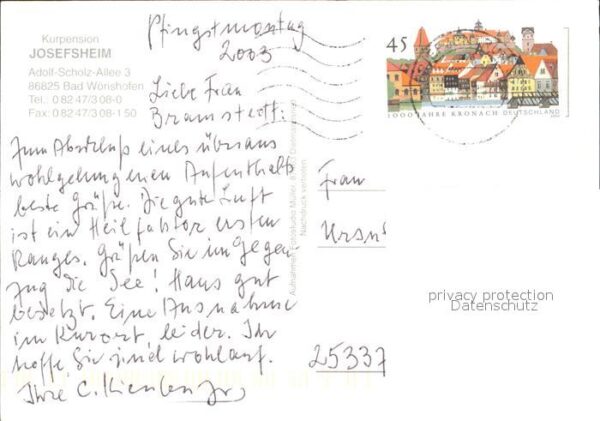 Kurpension
JOSEFSHEIM
Adolf-Scholz-Allee 3
86825 Bad Wörishofen
Tel.: 0 82 47/3 08-0
Fax: 0 82 47/3 08-1 50
Pfingstmontag
2003
Liebe Frau
Bramstedt:
Zum Abschluß eines überaus
wohlgelungenen Aufenthalts
beste Grüße. Die gute Luft
ist ein Heilfaktor ersten
Ranges. Grüßen Sie im Gegen-
zug die See! Haus gut
besetzt. Eine Ausnahme
im Kurort, leider. Ich
hoffe, Sie sind wohlauf.
Ihre C.
Nachdruck verboten
45
1000 JAHRE KRONACH DEUTSCHLAND
Frau
25337
privacy protection
Datenschutz